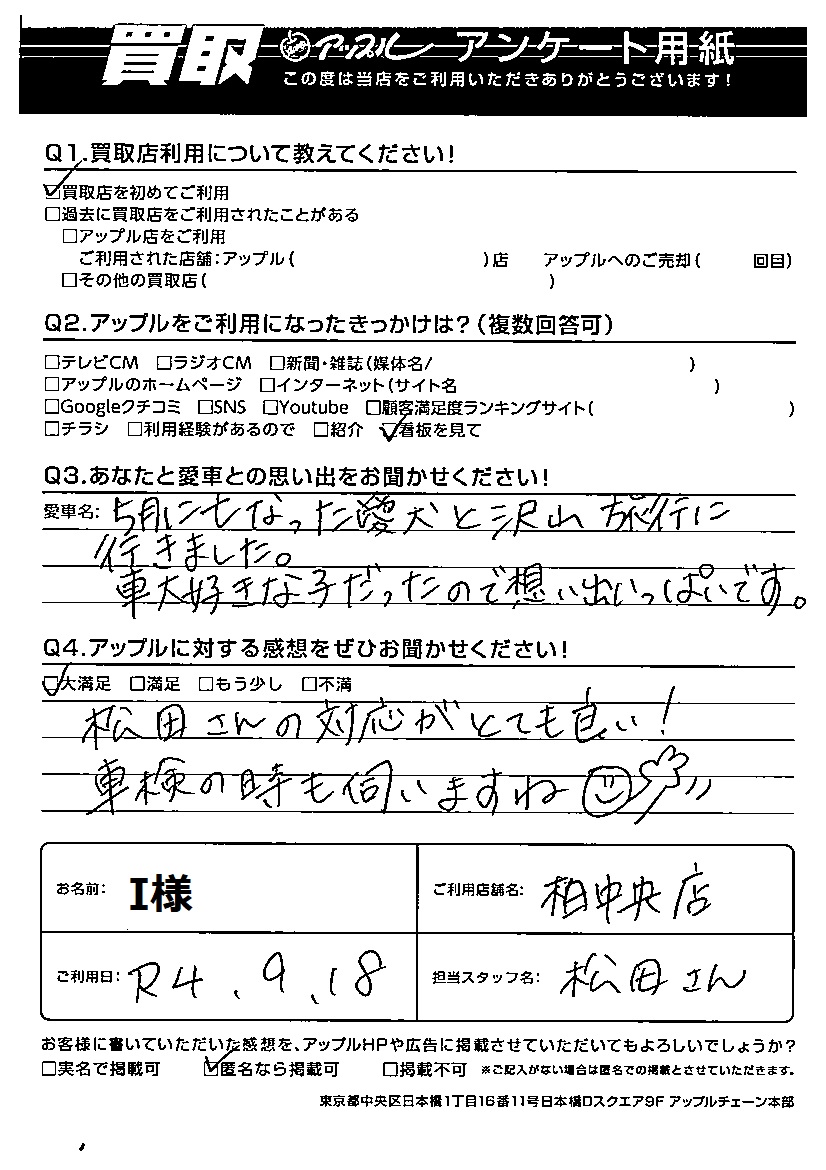 買取 アップル アンケート用紙
この度は当店をご利用いただきありがとうございます!
Q1.買取店利用について教えてください!
☑買取店を初めてご利用
□過去に買取店をご利用されたことがある
□アップル店をご利用
ご利用された店舗:アップル( )店 アップルへのご売却( 回目)
□その他の買取店( )
Q2.アップルをご利用になったきっかけは?(複数回答可)
□テレビCM □ラジオCM □新聞・雑誌(媒体名/ )
□アップルのホームページ □インターネット(サイト名 )
□Googleクチコミ □SNS □Youtube □顧客満足度ランキングサイト( )
□チラシ □利用経験があるので □紹介 ☑看板を見て
Q3.あなたと愛車との思い出をお聞かせください!
愛車名: 5月に亡なった愛犬と沢山旅行に
行きました。
車大好きな子だったので想い出いっぱいです。
Q4.アップルに対する感想をぜひお聞かせください!
☑大満足 □満足 □もう少し □不満
松田さんの対応がとても良い!
車検の時も伺いますね
お名前: I様 ご利用店舗名: 柏中央店
ご利用日: R4.9.18 担当スタッフ名: 松田さん
お客様に書いていただいた感想を、アップルHPや広告に掲載させていただいてもよろしいでしょうか?
□実名で掲載可 ☑匿名なら掲載可 □掲載不可 ※ご記入がない場合は匿名での掲載とさせていただきます。
東京都中央区日本橋1丁目16番11号日本橋Dスクエア9F アップルチェーン本部